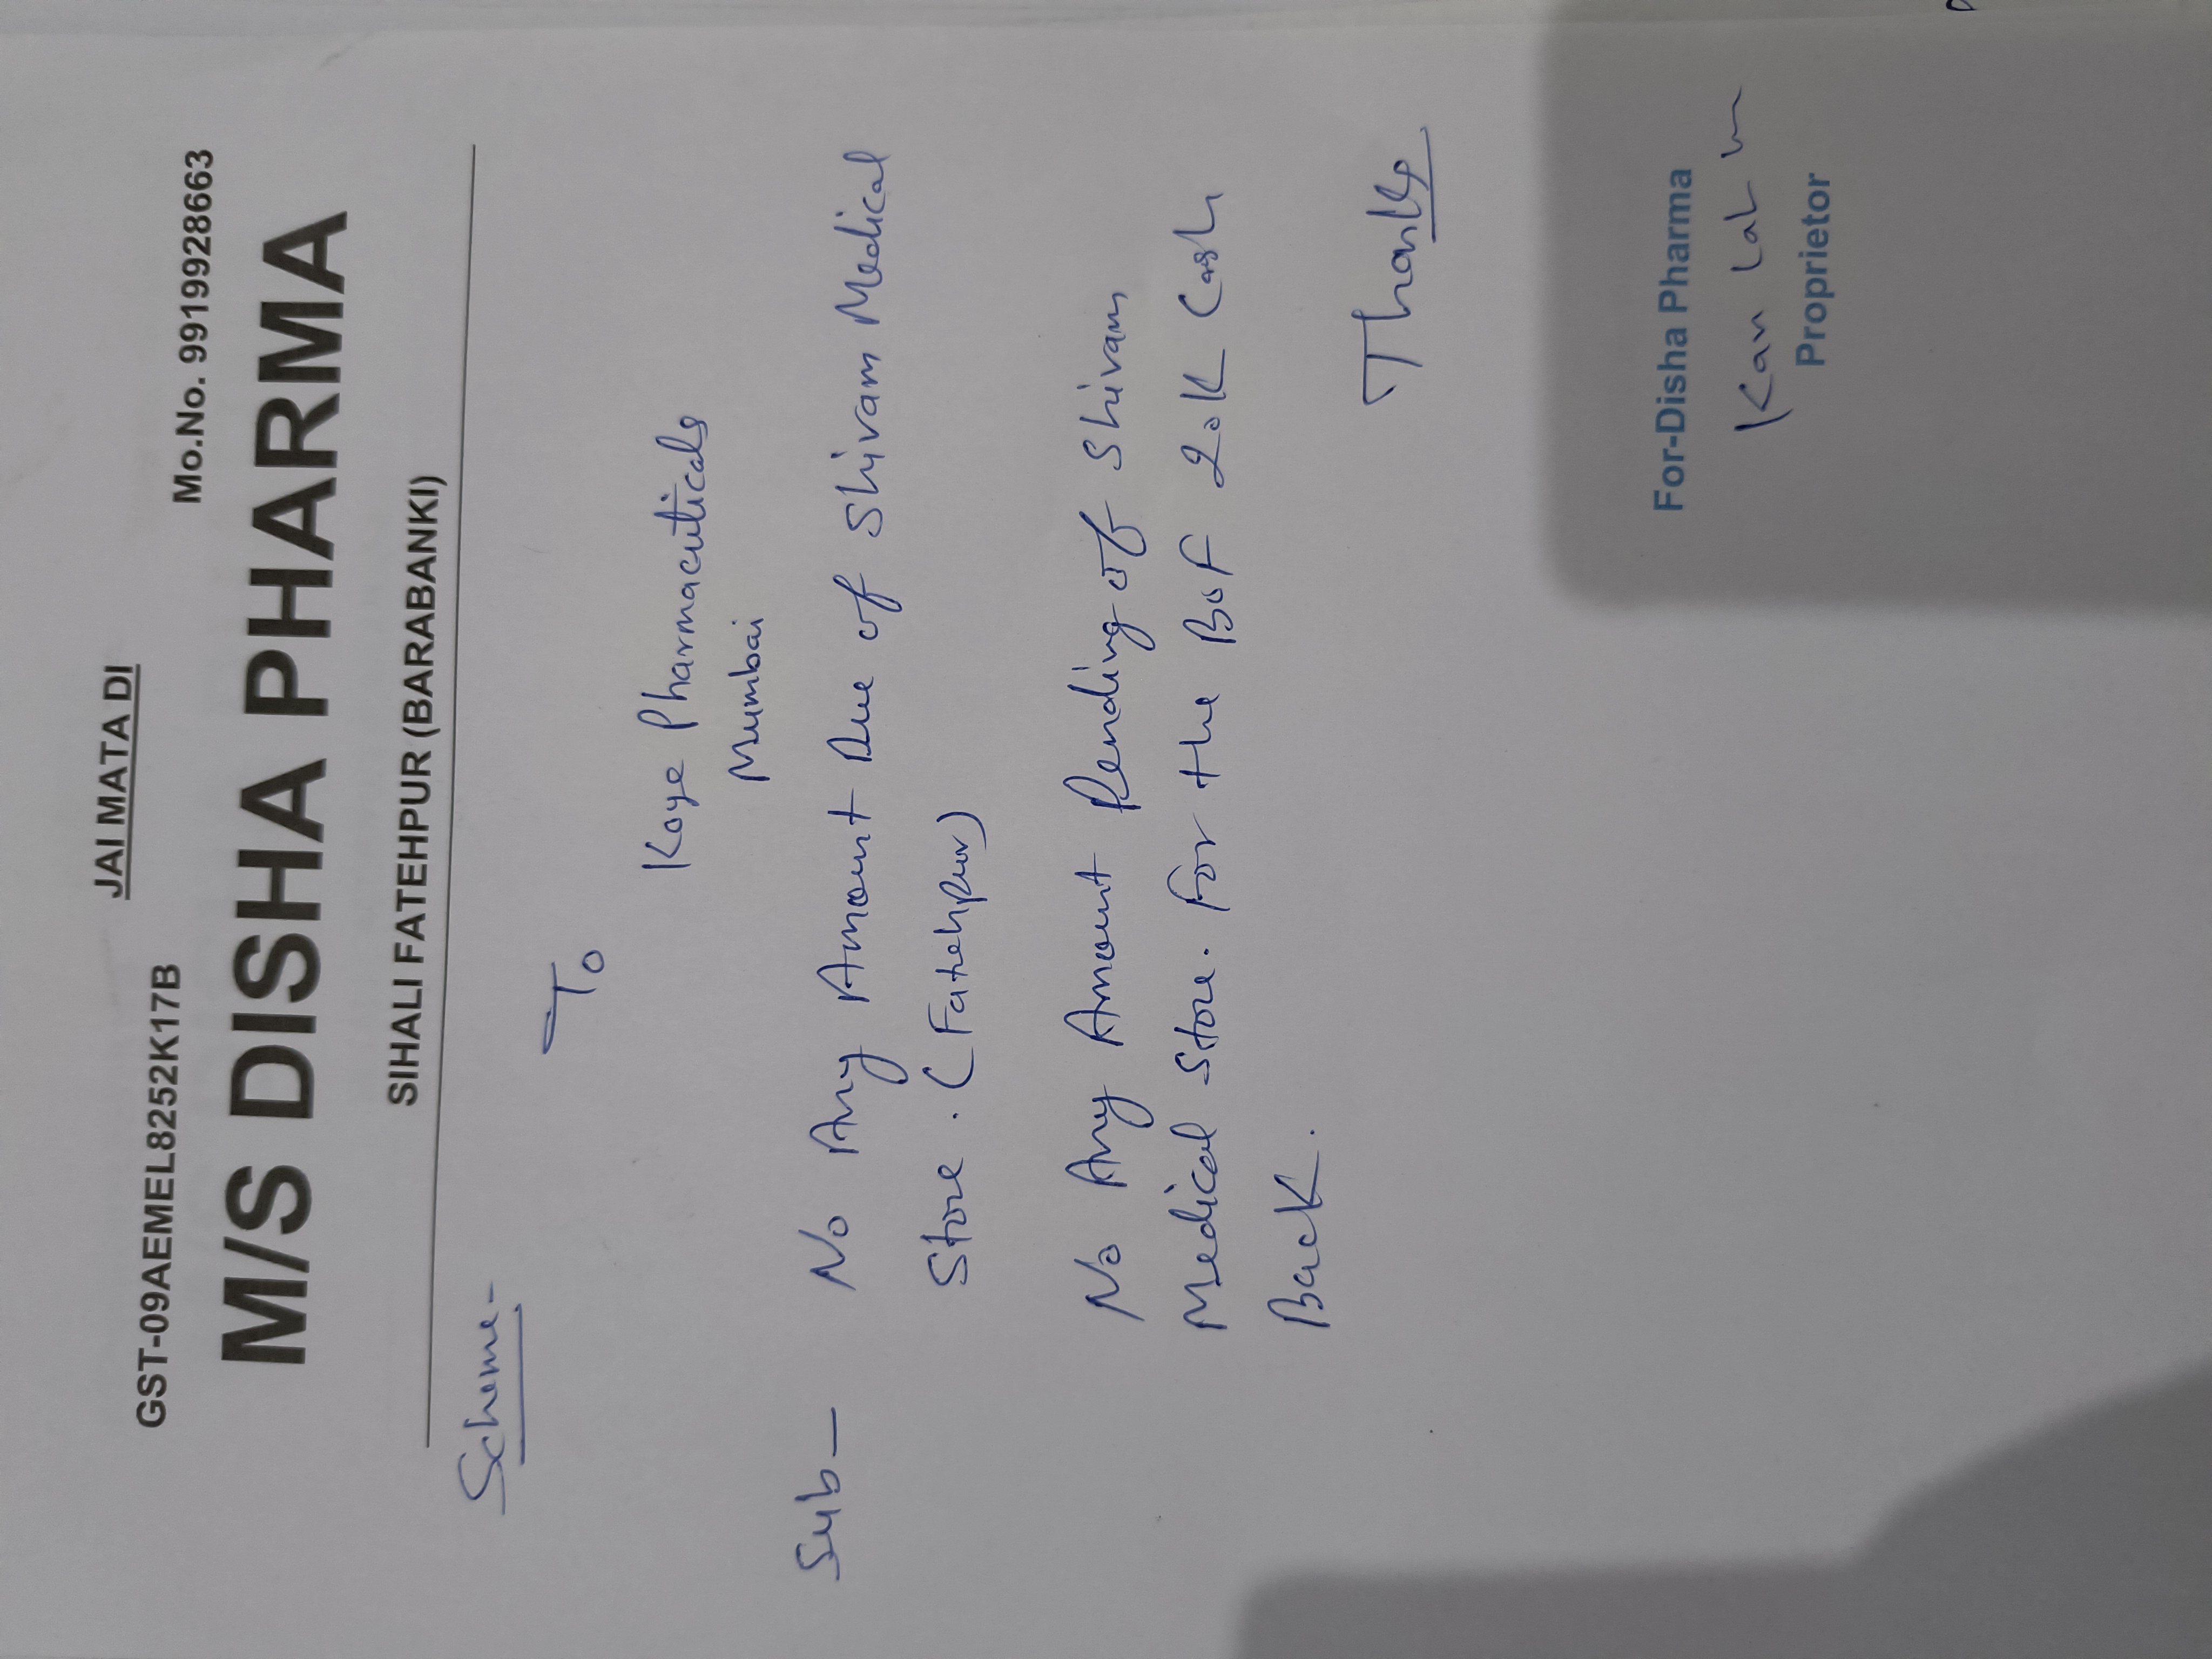 JAI MATA DI
GST-09AEMEL8252K17B Mo.No. 9919928663
M/S DISHA PHARMA
SIHALI FATEHPUR (BARABANKI)
Scheme-
To
Koye Pharmaceuticals
Mumbai
Sub- No Any Amount Due of Shivam Medical
Store. (Fatehpur)
No Any Amount Pending of Shivam
Medical Store. For the BOF 20K Cash
Back.
Thanks
For-Disha Pharma
Proprietor